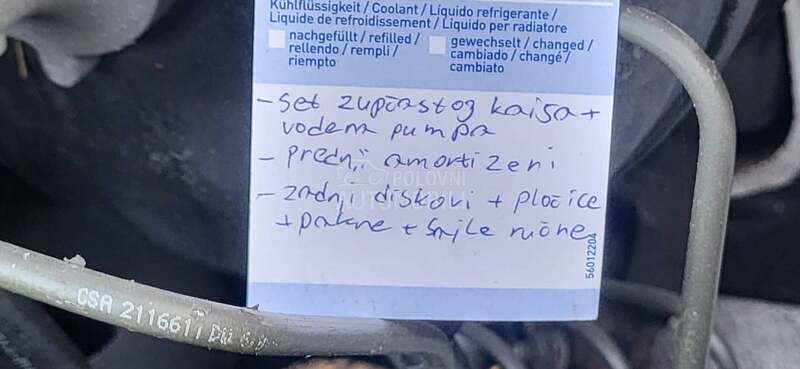 Kühlflüssigkeit / Coolant / Líquido refrigerante /
Liquide de refroidissement / Liquido per radiatore
nachgefüllt / refilled /
rellendo / rempli /
riempto
gewechselt / changed /
cambiado / changé /
cambiato
- Set zupčastog kaiša +
vodena pumpa
- prednji amortizeri
- zadnji diskovi + pločice
+ pakne + šajle ručne
POLOVNI
56012204
GSA 2116611 DW